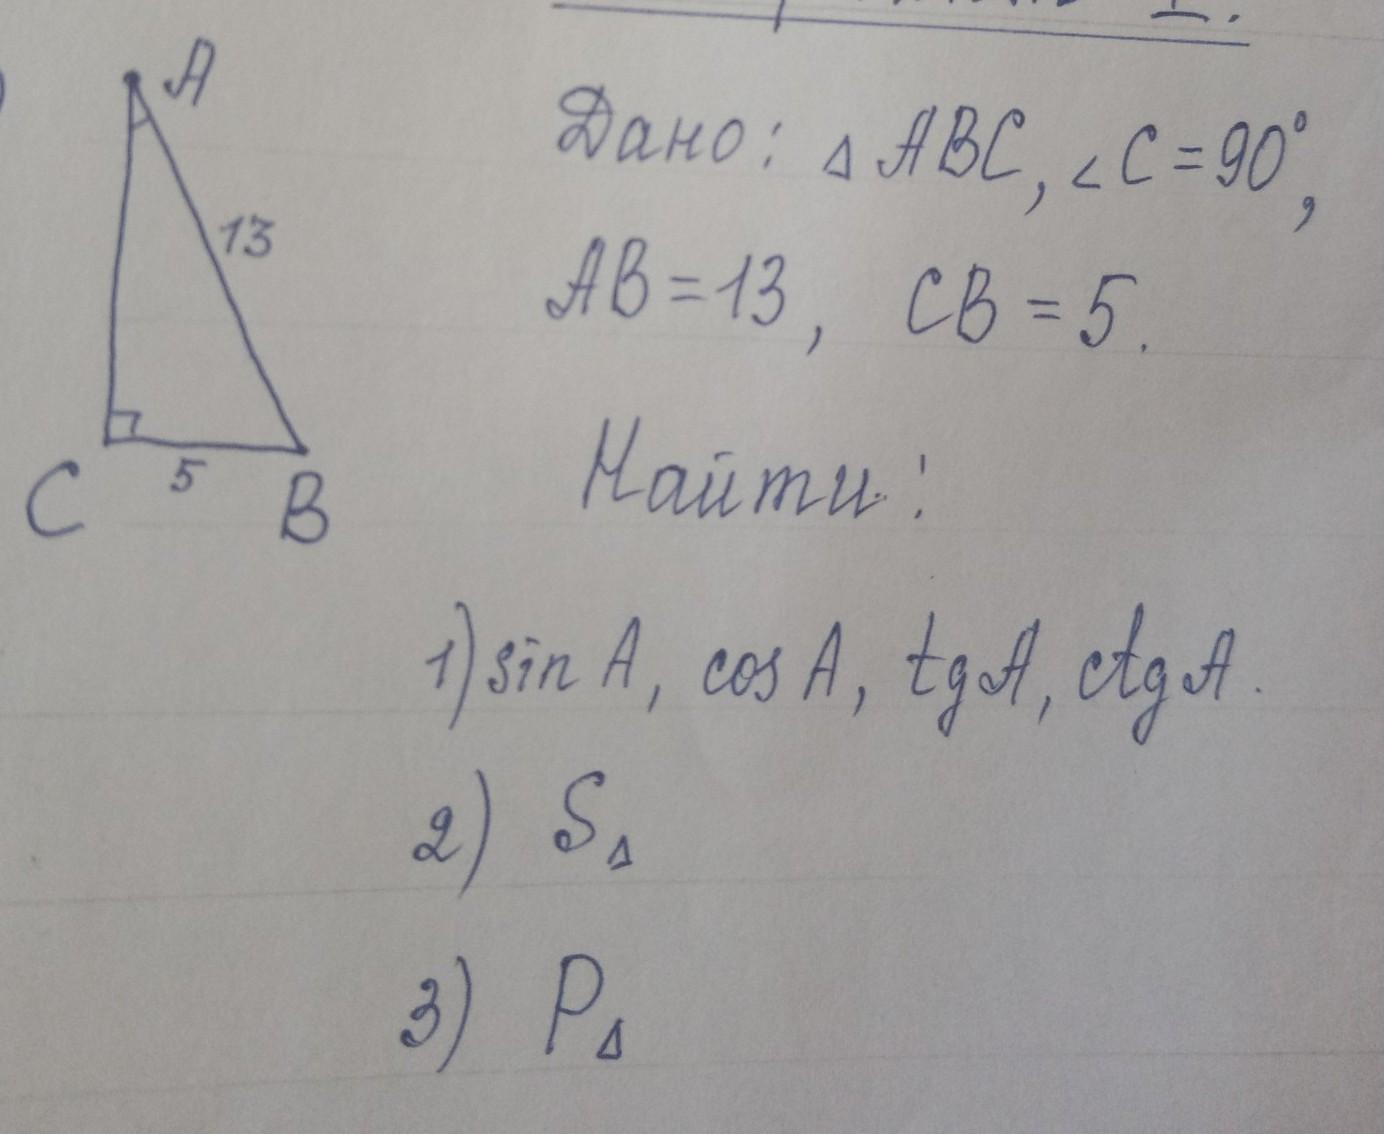 A
13
C
5
B
Дано: △ ABC, ∠C = 90°,
AB = 13, CB = 5.
Найти:
1) sin A, cos A, tg A, ctg A.
2) S△
3) P△